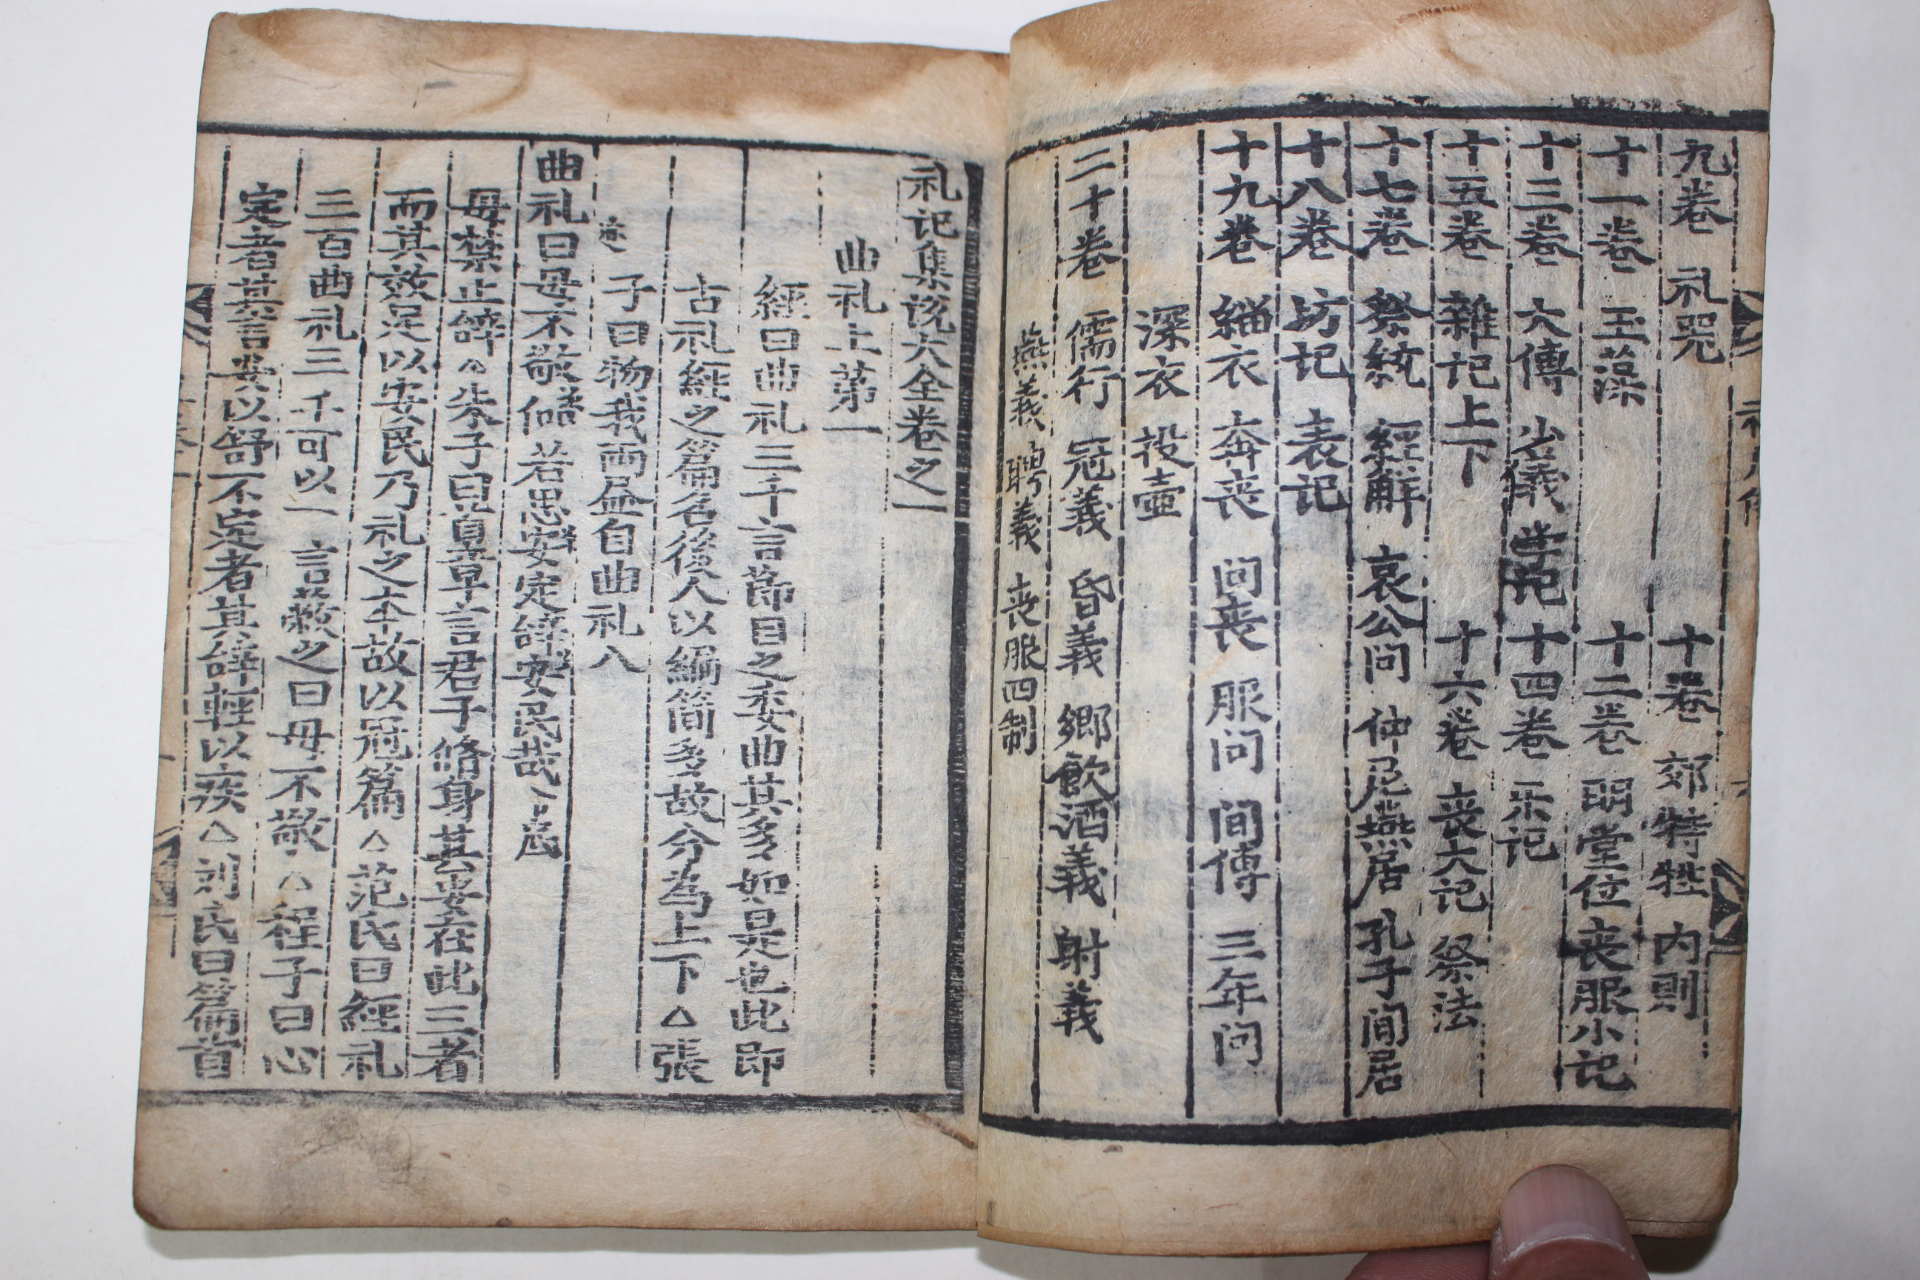 九卷 礼器 十卷 郊特牲 內則
十一卷 玉藻 十二卷 明堂位 丧服小记
十三卷 大傳 少儀 学记 十四卷 乐记
十五卷 雜记上下 十六卷 丧大记 祭法
十七卷 祭統 經解 哀公问 仲尼燕居 孔子间居
十八卷 坊记 表记
十九卷 緇衣 奔丧 问丧 服问 间傳 三年问
深衣 投壺
二十卷 儒行 冠義 昏義 鄉飲酒義 射義
燕義 聘義 丧服四制
礼记集说大全卷之一
曲礼上第一
經曰曲礼三千言節目之委曲其多如是也此即
古礼經之篇名後人以編简多故分為上下△張
子曰物我两尽自曲礼入
曲礼曰毋不敬儼若思安定辞安民哉
毋禁止辞△朱子曰首章言君子修身其要在此三者
而其效足以安民乃礼之本故以冠篇△范氏曰經礼
三百曲礼三千可以一言蔽之曰毋不敬△程子曰心
定者其言安以舒不定者其辞輕以疾△刘氏曰篇首